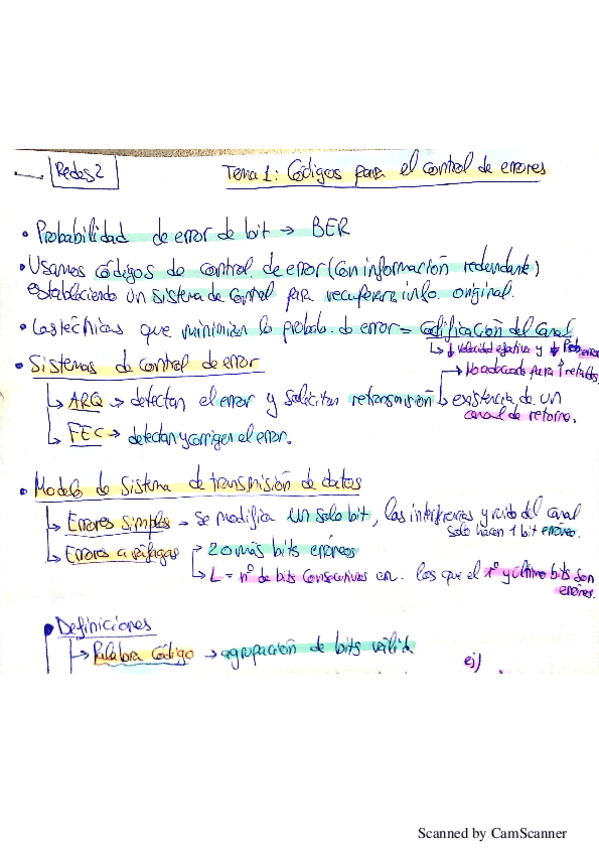 Redes 2
Tema 1: Códigos para el control de errores
• Probabilidad de error de bit → BER
• Usamos códigos de control de error (con información redundante)
estableciendo un sistema de control para recuperar info. original.
• Las técnicas que minimizan la probab. de error = codificación del canal
↳ ↓ velocidad efectiva y ↓ Prob error
• Sistemas de control de error
→ No adecuado para ↑ retardos
↳ ARQ → detectan el error y solicitan retransmisión ↳ existencia de un
canal de retorno.
↳ FEC → detectan y corrigen el error.
• Modelo de sistema de transmisión de datos
↳ Errores simples → se modifica un solo bit, las interferencias y ruido del canal
solo hacen 1 bit erróneo.
↳ Errores a ráfagas → 2 o más bits erróneos
↳ L = nº de bits consecutivos en. los que el 1º y último bits son
erróneos.
• Definiciones
→ Palabra código → agrupación de bits válida
ej)
Scanned by CamScanner